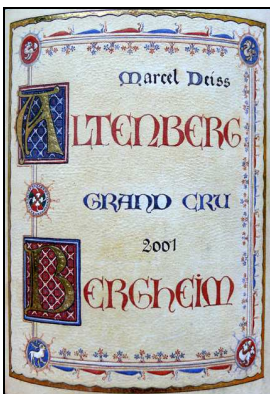 Marcel Deiss
ALTENBERG
GRAND CRU
2001
BERGHEIM